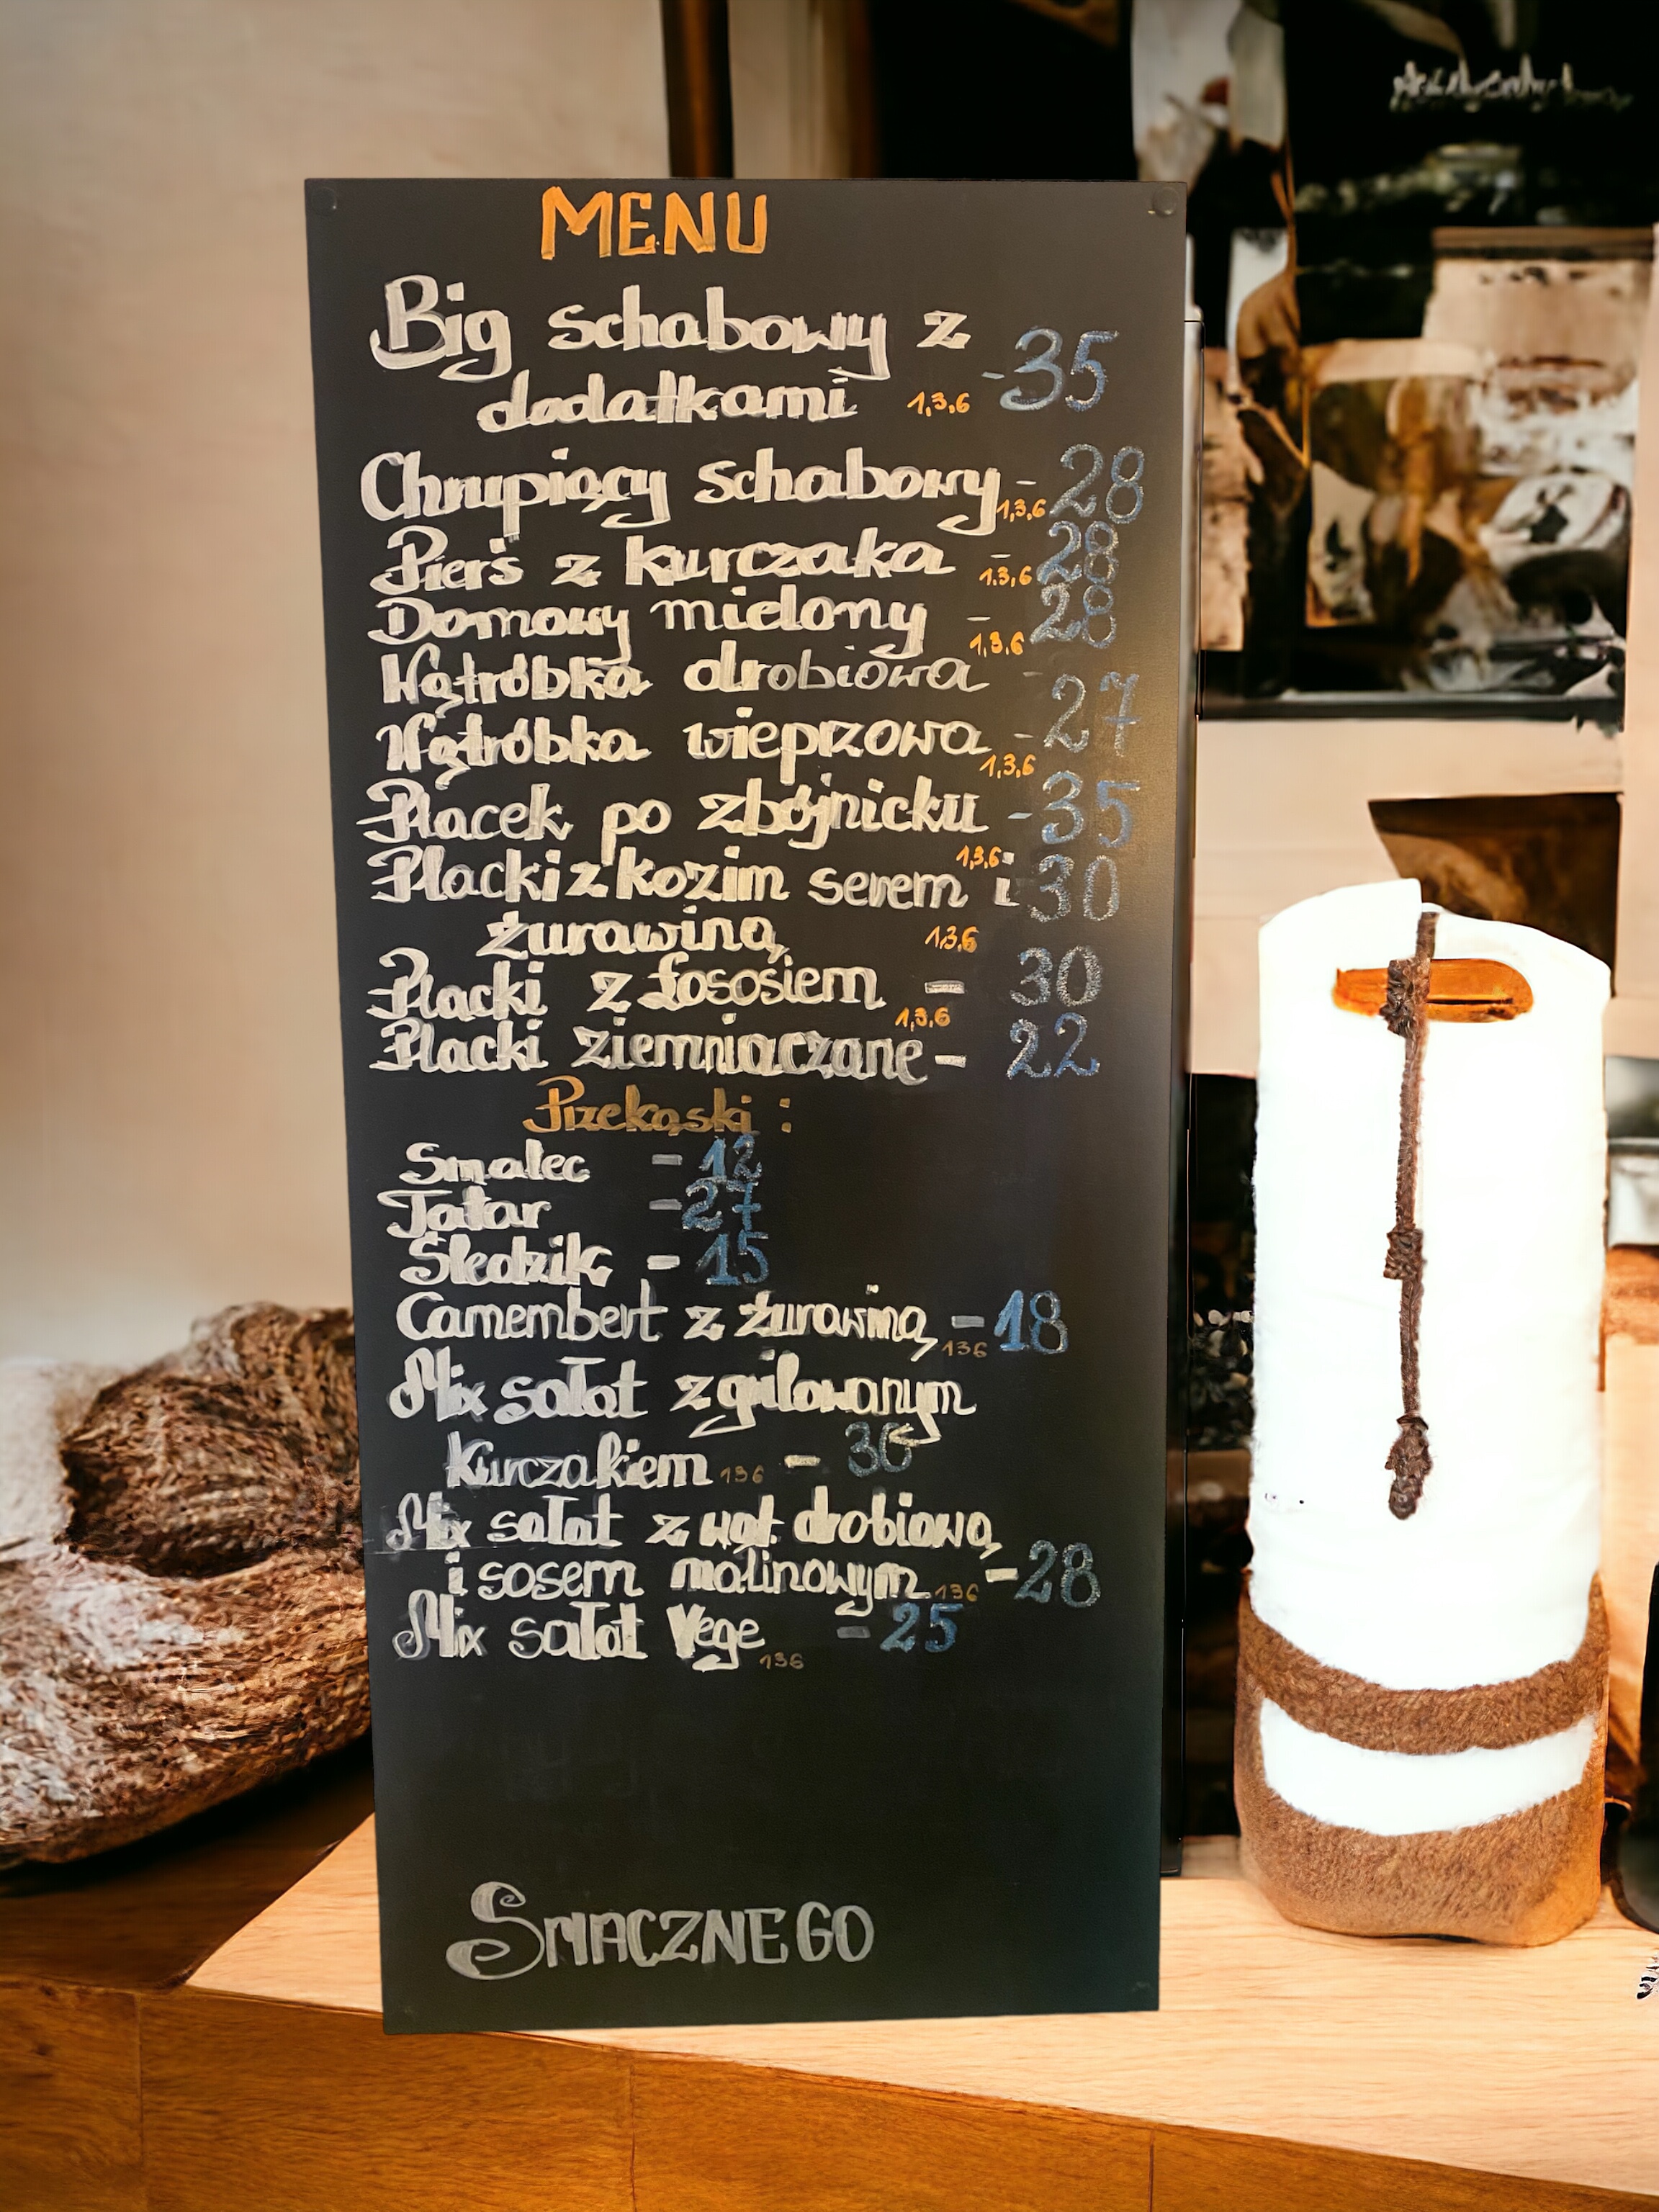 MENU
Big schabowy z
dodatkami 1,3,6 -35
Chrupiący schabowy - 1,3,6 28
Pierś z kurczaka - 1.3,6 28
Domowy mielony - 1,3,6 28
Wątróbka drobiowa -
Wątróbka wieprzowa - 27
1,3,6
Placek po zbójnicku - 35
1,3,6
Placki z kozim serem i 30
żurawiną 1,3,6
Placki z łososiem - 30
1,3,6
Placki ziemniaczane - 22
Przekąski :
Smalec - 12
Tatar - 27
Śledzik - 15
Camembert z żurawiną - 18
136
Mix sałat z grilowanym
Kurczakiem 136 - 30
Mix sałat z wąt drobiową
i sosem malinowym 136 - 28
Mix sałat Vege 136 - 25
SMACZNEGO